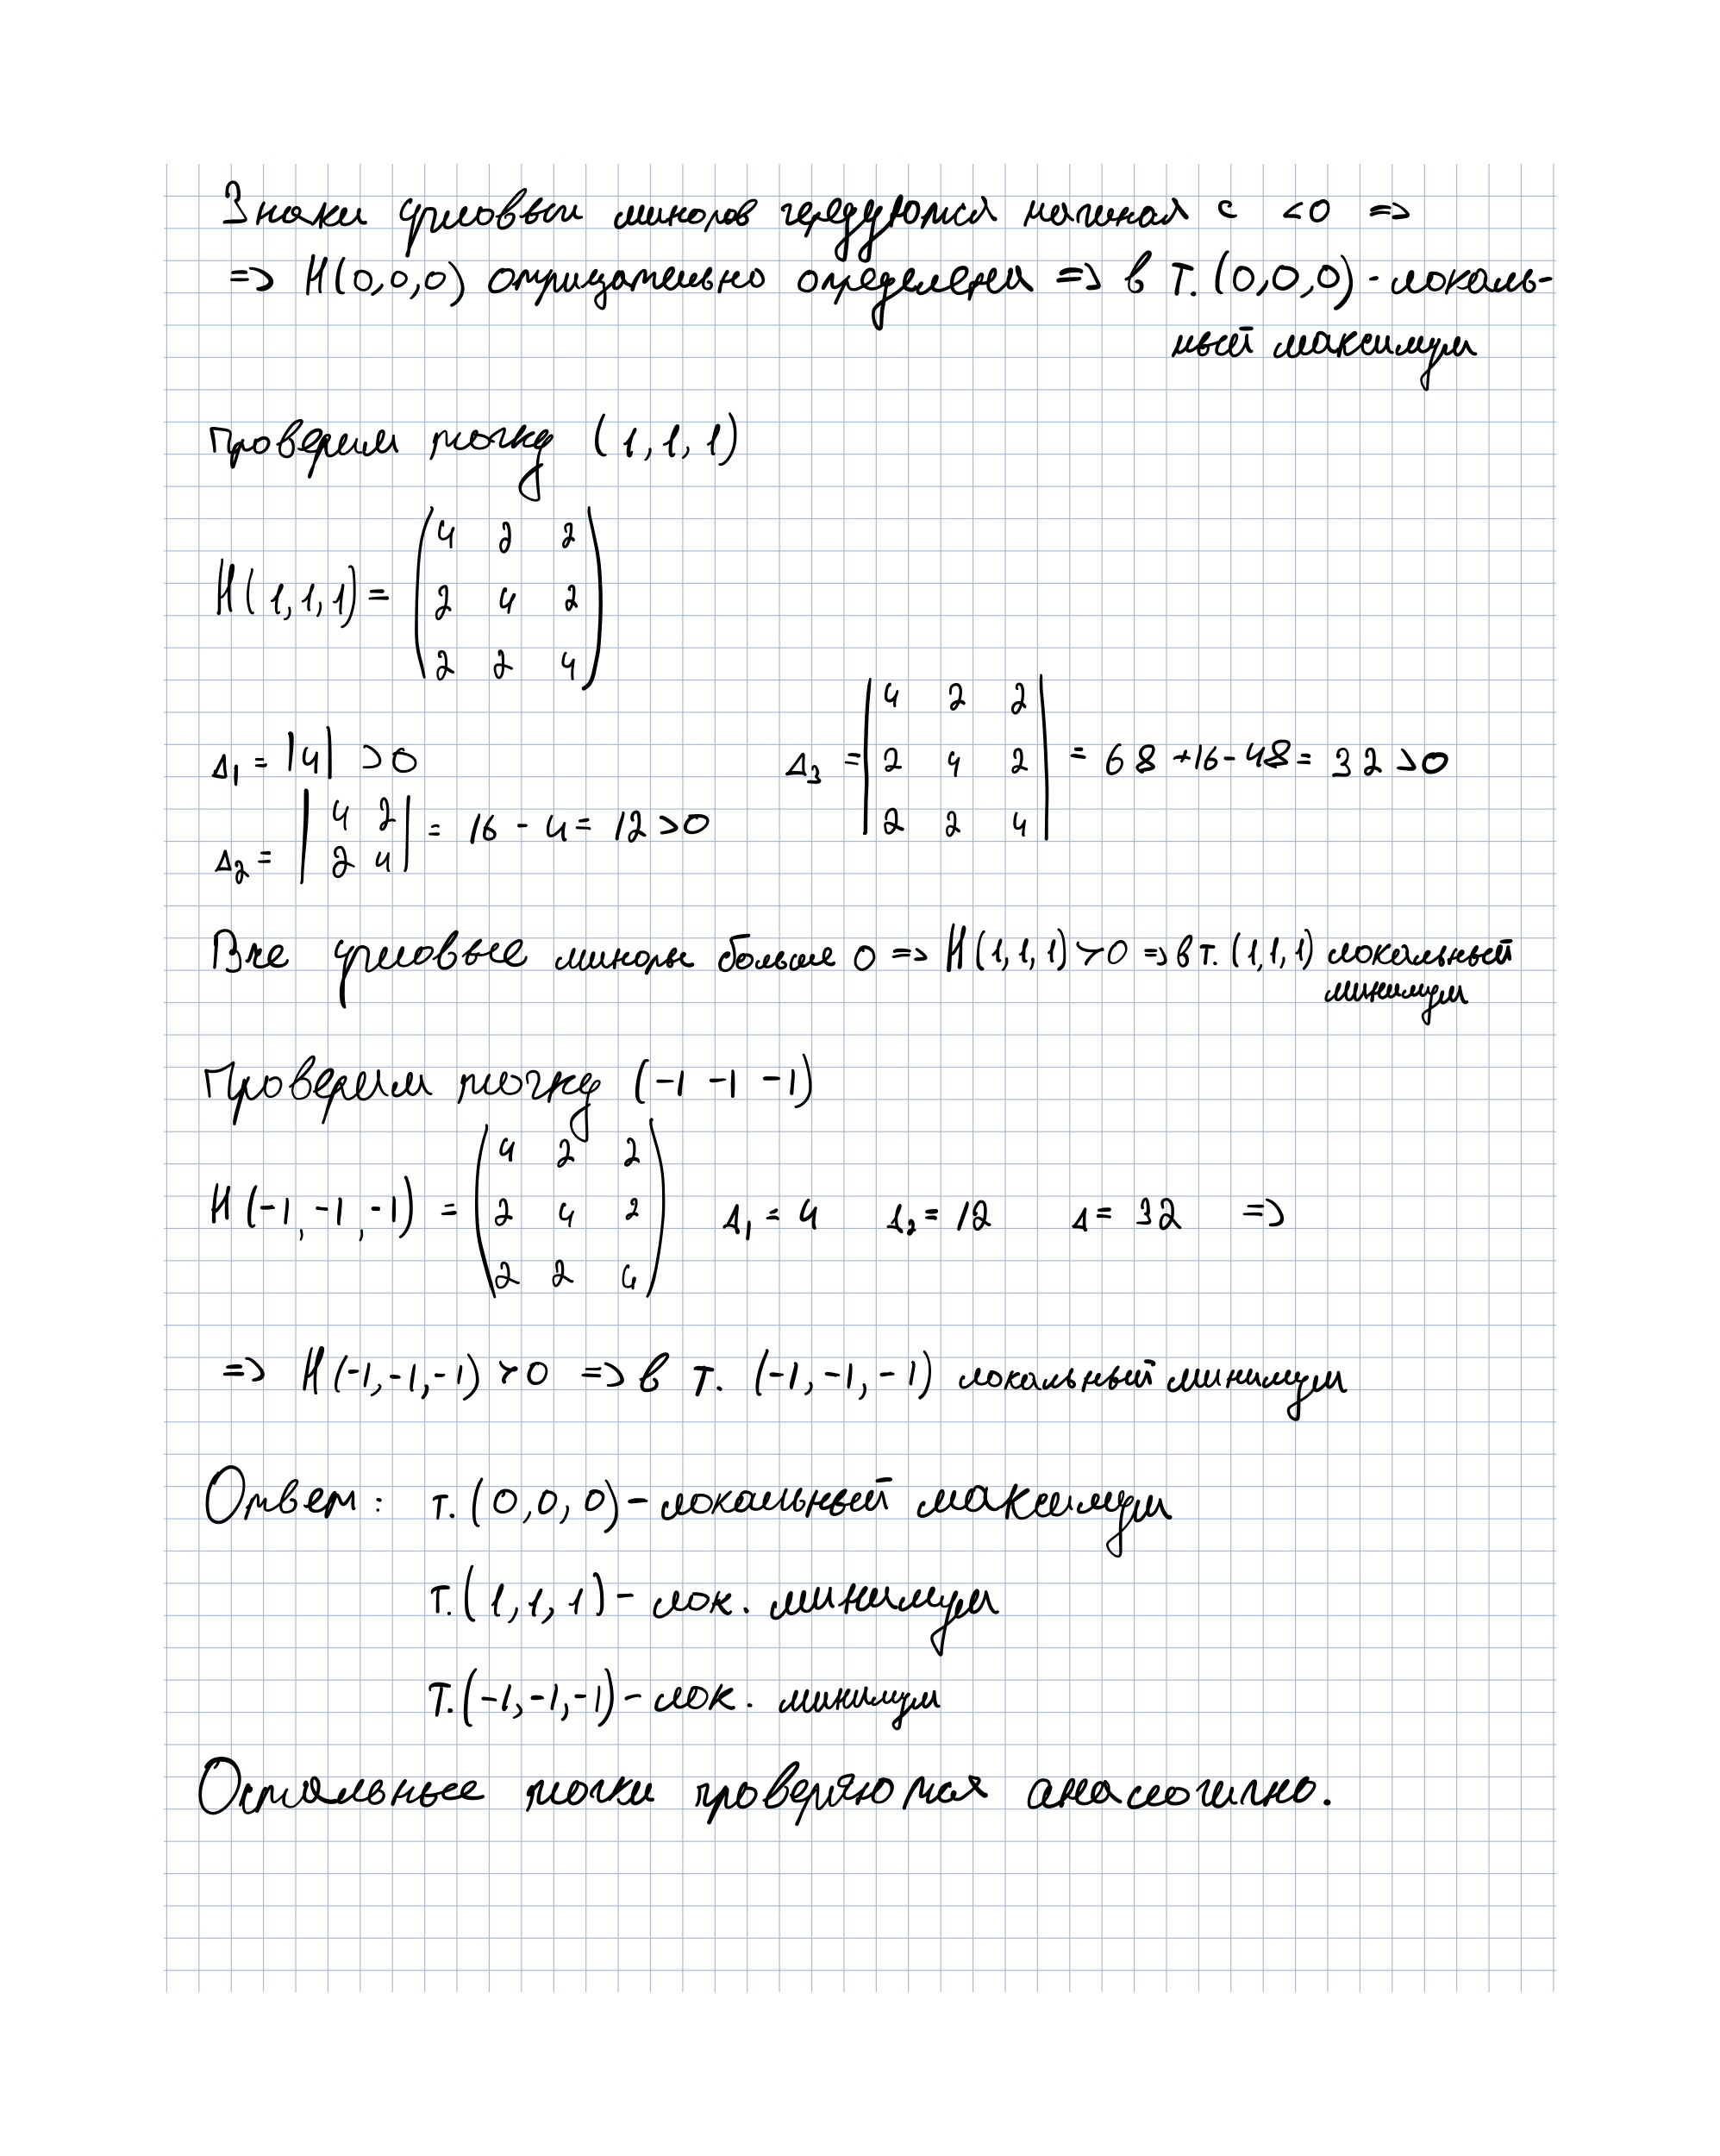 Знаки угловых миноров чередуются начиная с <0 =>
=> H(0,0,0) отрицательно определена => в т. (0,0,0) - локаль-
ный максимум
Проверим точку (1,1,1)
H(1,1,1) =
4 2 2
2 4 2
2 2 4
Δ₁ = |4| >0
Δ₂ = | 4 2 | = 16 - 4 = 12 >0
2 4
Δ₃ = | 4 2 2 |
2 4 2 = 68 +16 - 48 = 32 >0
2 2 4
Все угловые миноры больше 0 => H(1,1,1) ≻0 => в т. (1,1,1) локальный
минимум
Проверим точку (-1 -1 -1)
H(-1,-1,-1) =
4 2 2
2 4 2
2 2 4
Δ₁ = 4 Δ₂ = 12 Δ = 32 =>
=> H(-1,-1,-1) ≻0 => в т. (-1,-1,-1) локальный минимум
Ответ: т. (0,0,0) - локальный максимум
т. (1,1,1) - лок. минимум
т. (-1,-1,-1) - лок. минимум
Остальные точки проверяются аналогично.